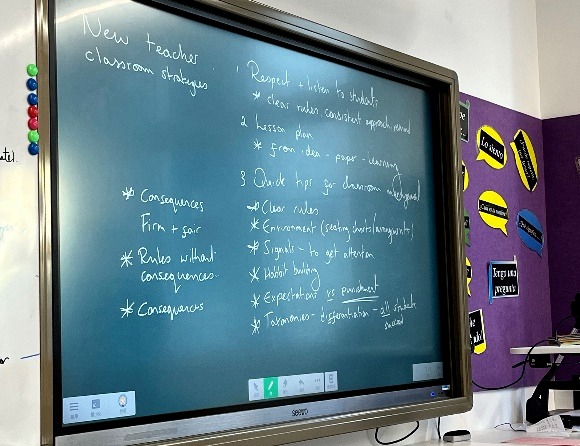 New teacher
classroom strategies
1 Respect + listen to students
* clear rules, consistent approach, remind
2 Lesson plan
* from idea - paper - learning
3 Quick tips for classroom
* Clear rules
* Environment (seating charts/arrangements)
* Signals - to get attention
* Habbit building
* Expectations vs punishment
* Taxonomies - differentiation - all students
succeed
* Consequences
Firm + fair
* Rules without
consequences.
* Consequences
seewo
Lo siento
Tengo una
pregunta